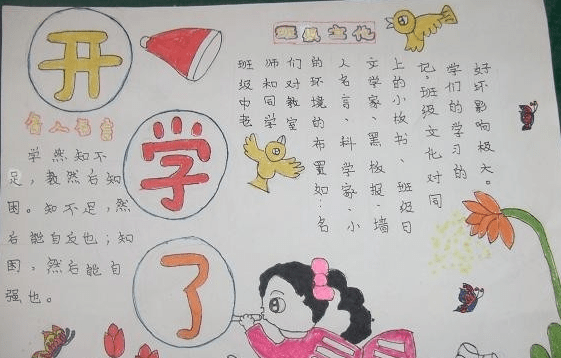 开
学
了
名人名言
学然知不
足，教然后知
困。知不足，然
后能自反也；知
困，然后能自
强也。
班队文化
班级中老
师和同学
们对教室
的环境的布置如：名
人名言、科学家、小
文学家、黑板报、墙
上的小板书、班级日
记，班级文化对同
学们的学习的
好坏影响极大。